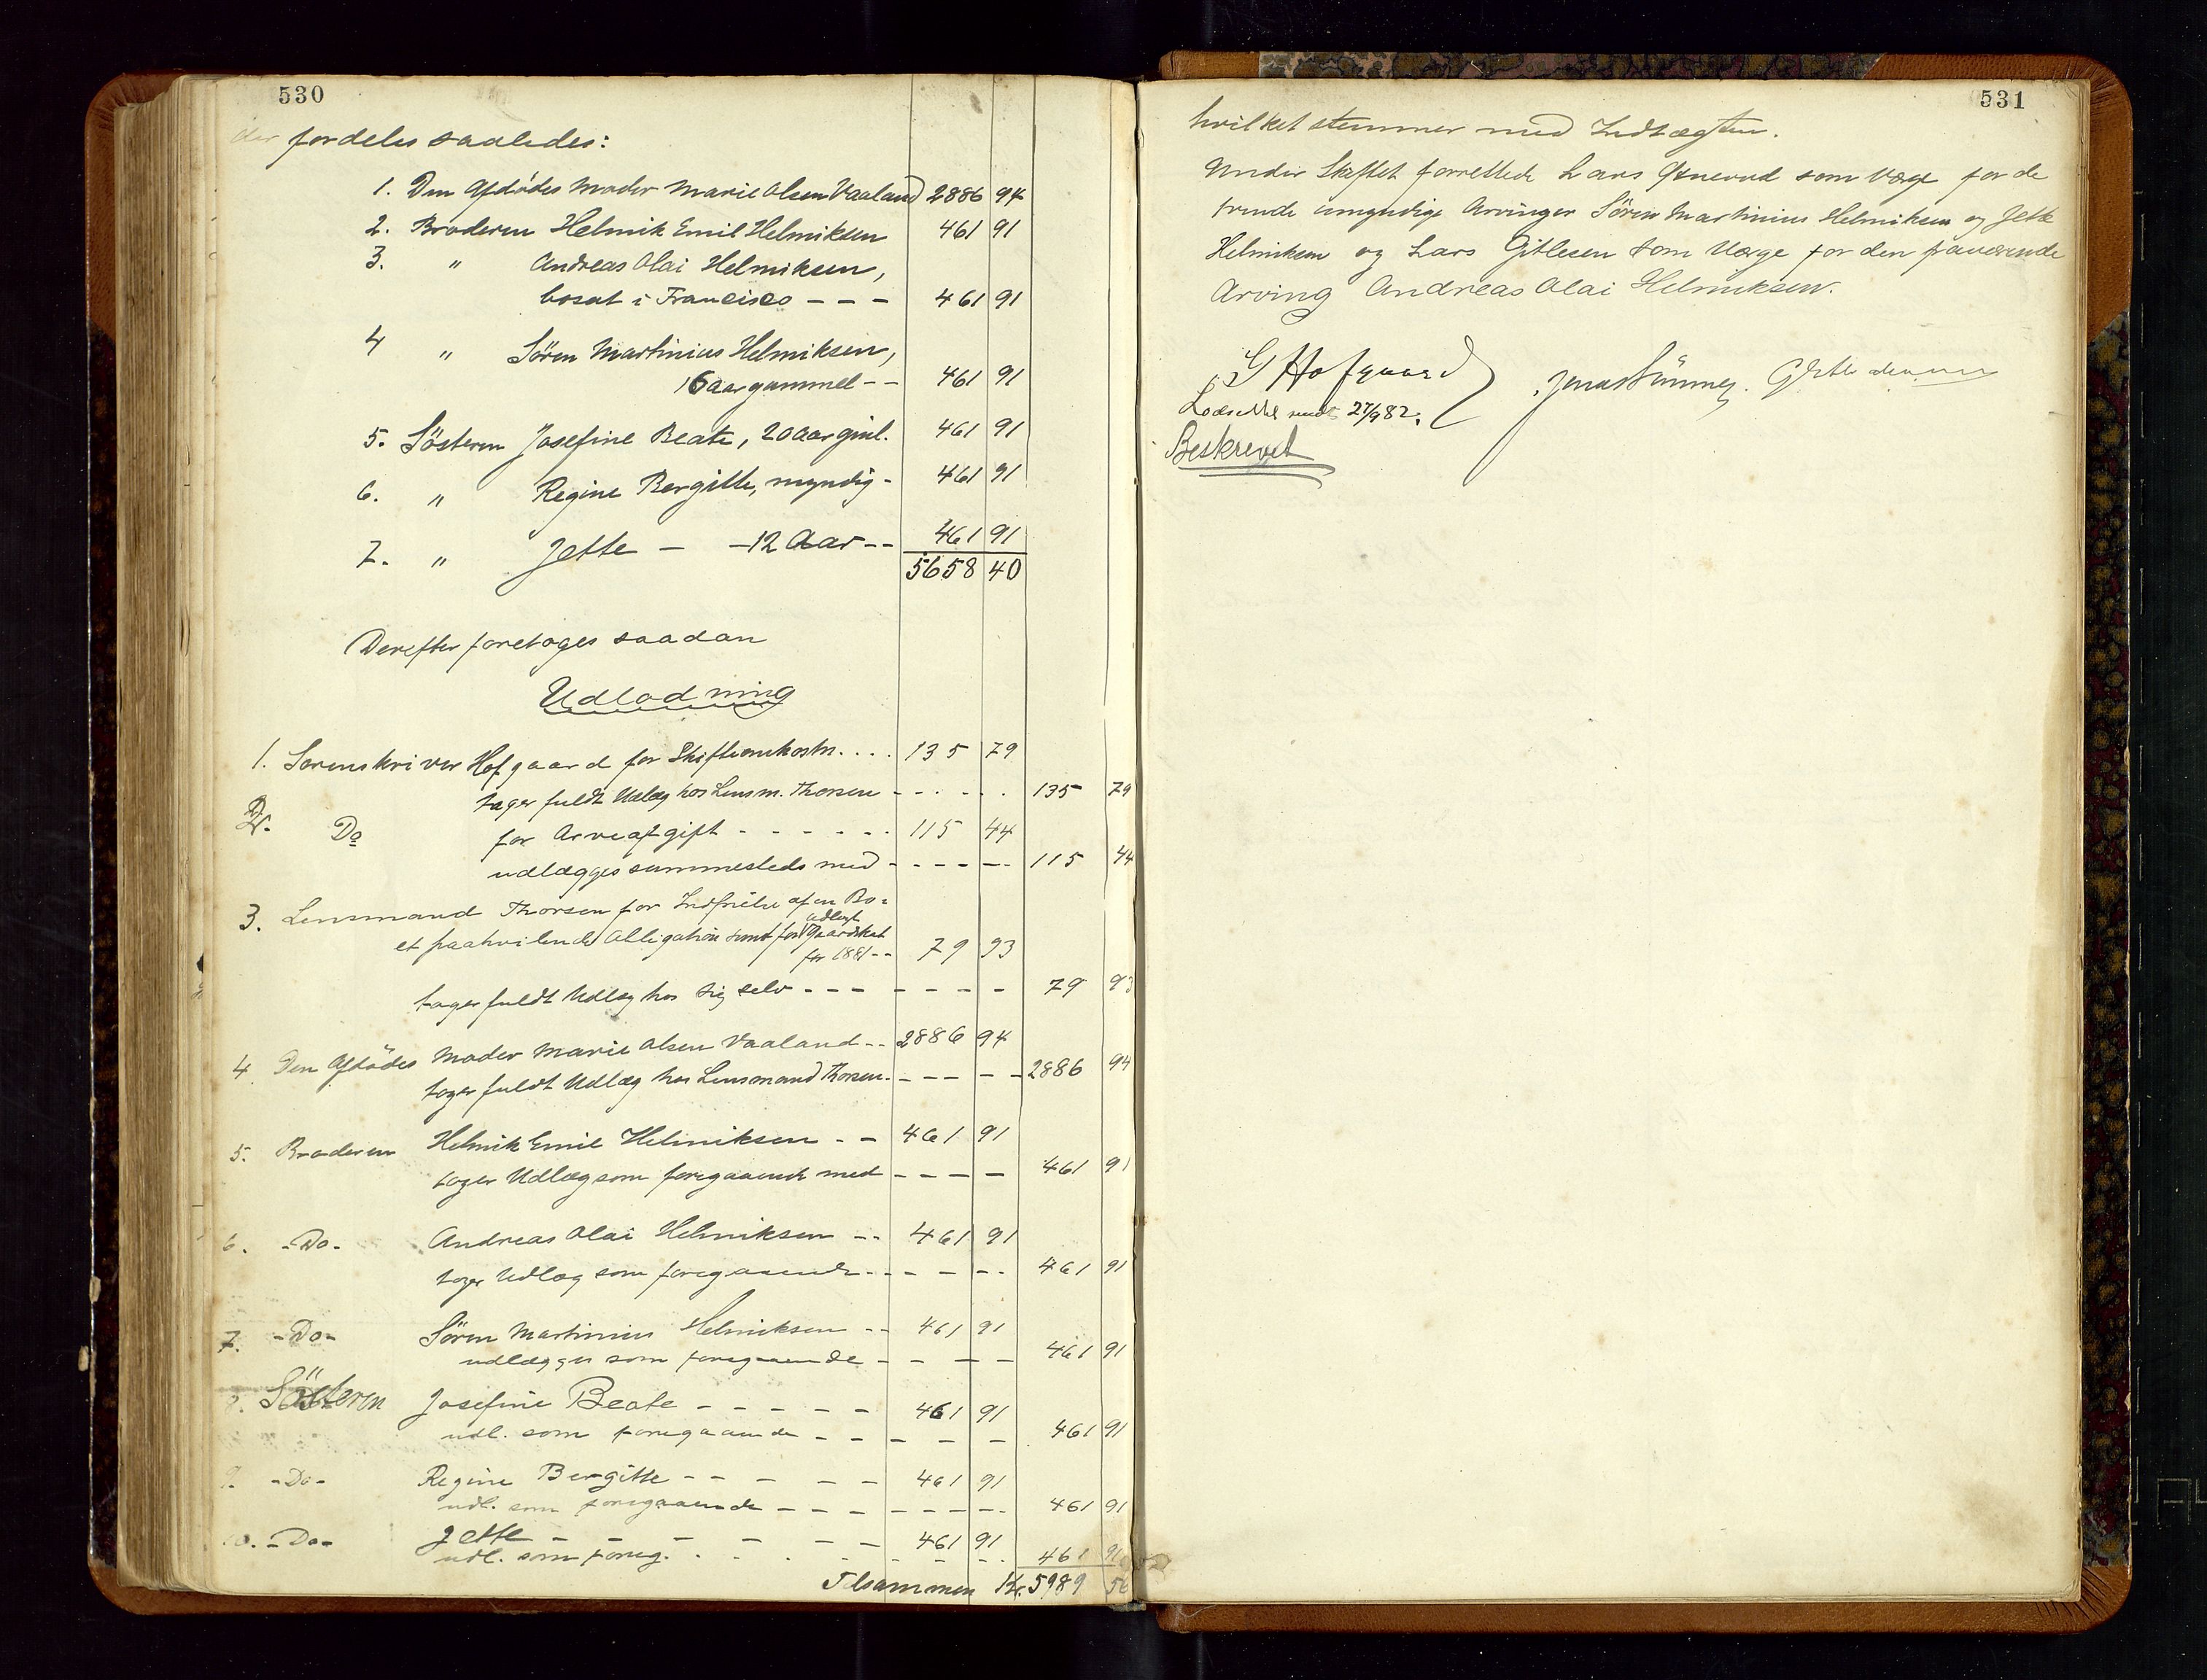 530
der fordeles saaledes:
1. Den Afdödes Moder Marie Olsen Vaaland 2886 94
2. Broderen Helmik Emil Helmiksen 461 91
3. " Andreas Olai Helmiksen,
bosat i Francisco - - - 461 91
4 " Sören Martinius Helmiksen,
16 aar gammel - - 461 91
5. Sösteren Josefine Beate, 20 aar gml. 461 91
6. " Regine Bergitte, myndig - 461 91
7. " Jette - - 12 Aar - - 461 91
5658 40
Derefter foretoges saadan
Udlodning
1. Sorenskriver Hofgaard for Skifteomkostn. . . . 135 79
tager fuldt Udlæg hos Lensm. Thorsen - - - - - 135 79
2. Do for Arveafgift - - - - - - 115 44
udlægges sammesteds med - - - - - 115 44
3. Lensmand Thorsen for Indfrielse af en Bo-
et paahvilende Obligation samt for udlagt Gaardskat
for 1881 - - 79 93
tager fuldt Udlæg hos sig selv - - - - - - - 79 93
4. Den Afdödes Moder Marie Olsen Vaaland - - 2886 94
tager fuldt Udlæg hos Lensmand Thorsen - - - - - 2886 94
5. Broderen Helmik Emil Helmiksen - - 461 91
tager Udlæg som foregaaende med - - - - 461 91
6. - Do - Andreas Olai Helmiksen - - 461 91
tager Udlæg som foregaaende - - - - - 461 91
7. - Do - Sören Martinius Helmiksen - - 461 91
udlægges som foregaaende - - - - 461 91
8. Sösteren Josefine Beate - - - - - 461 91
udl. som foregaaende - - - - - 461 91
9. - Do - Regine Bergitte - - - - - 461 91
udl. som foregaaende - - - - - - - 461 91
10. - Do - Jette - - - - - - 461 91
udl. som foreg. - - - - - - - 461 91
Tilsammen Kr. 5989 56
531
hvilket stemmer med Indtægten.
Under Skiftet forrettede Lars som Værge for de
trende umyndige Arvinger Sören Martinius Helmiksen og Jette
Helmiksen og Lars Gitlesen som Værge for den fraværende
Arving Andreas Olai Helmiksen.
G Hofgaard
27/9 82.
Beskrevet